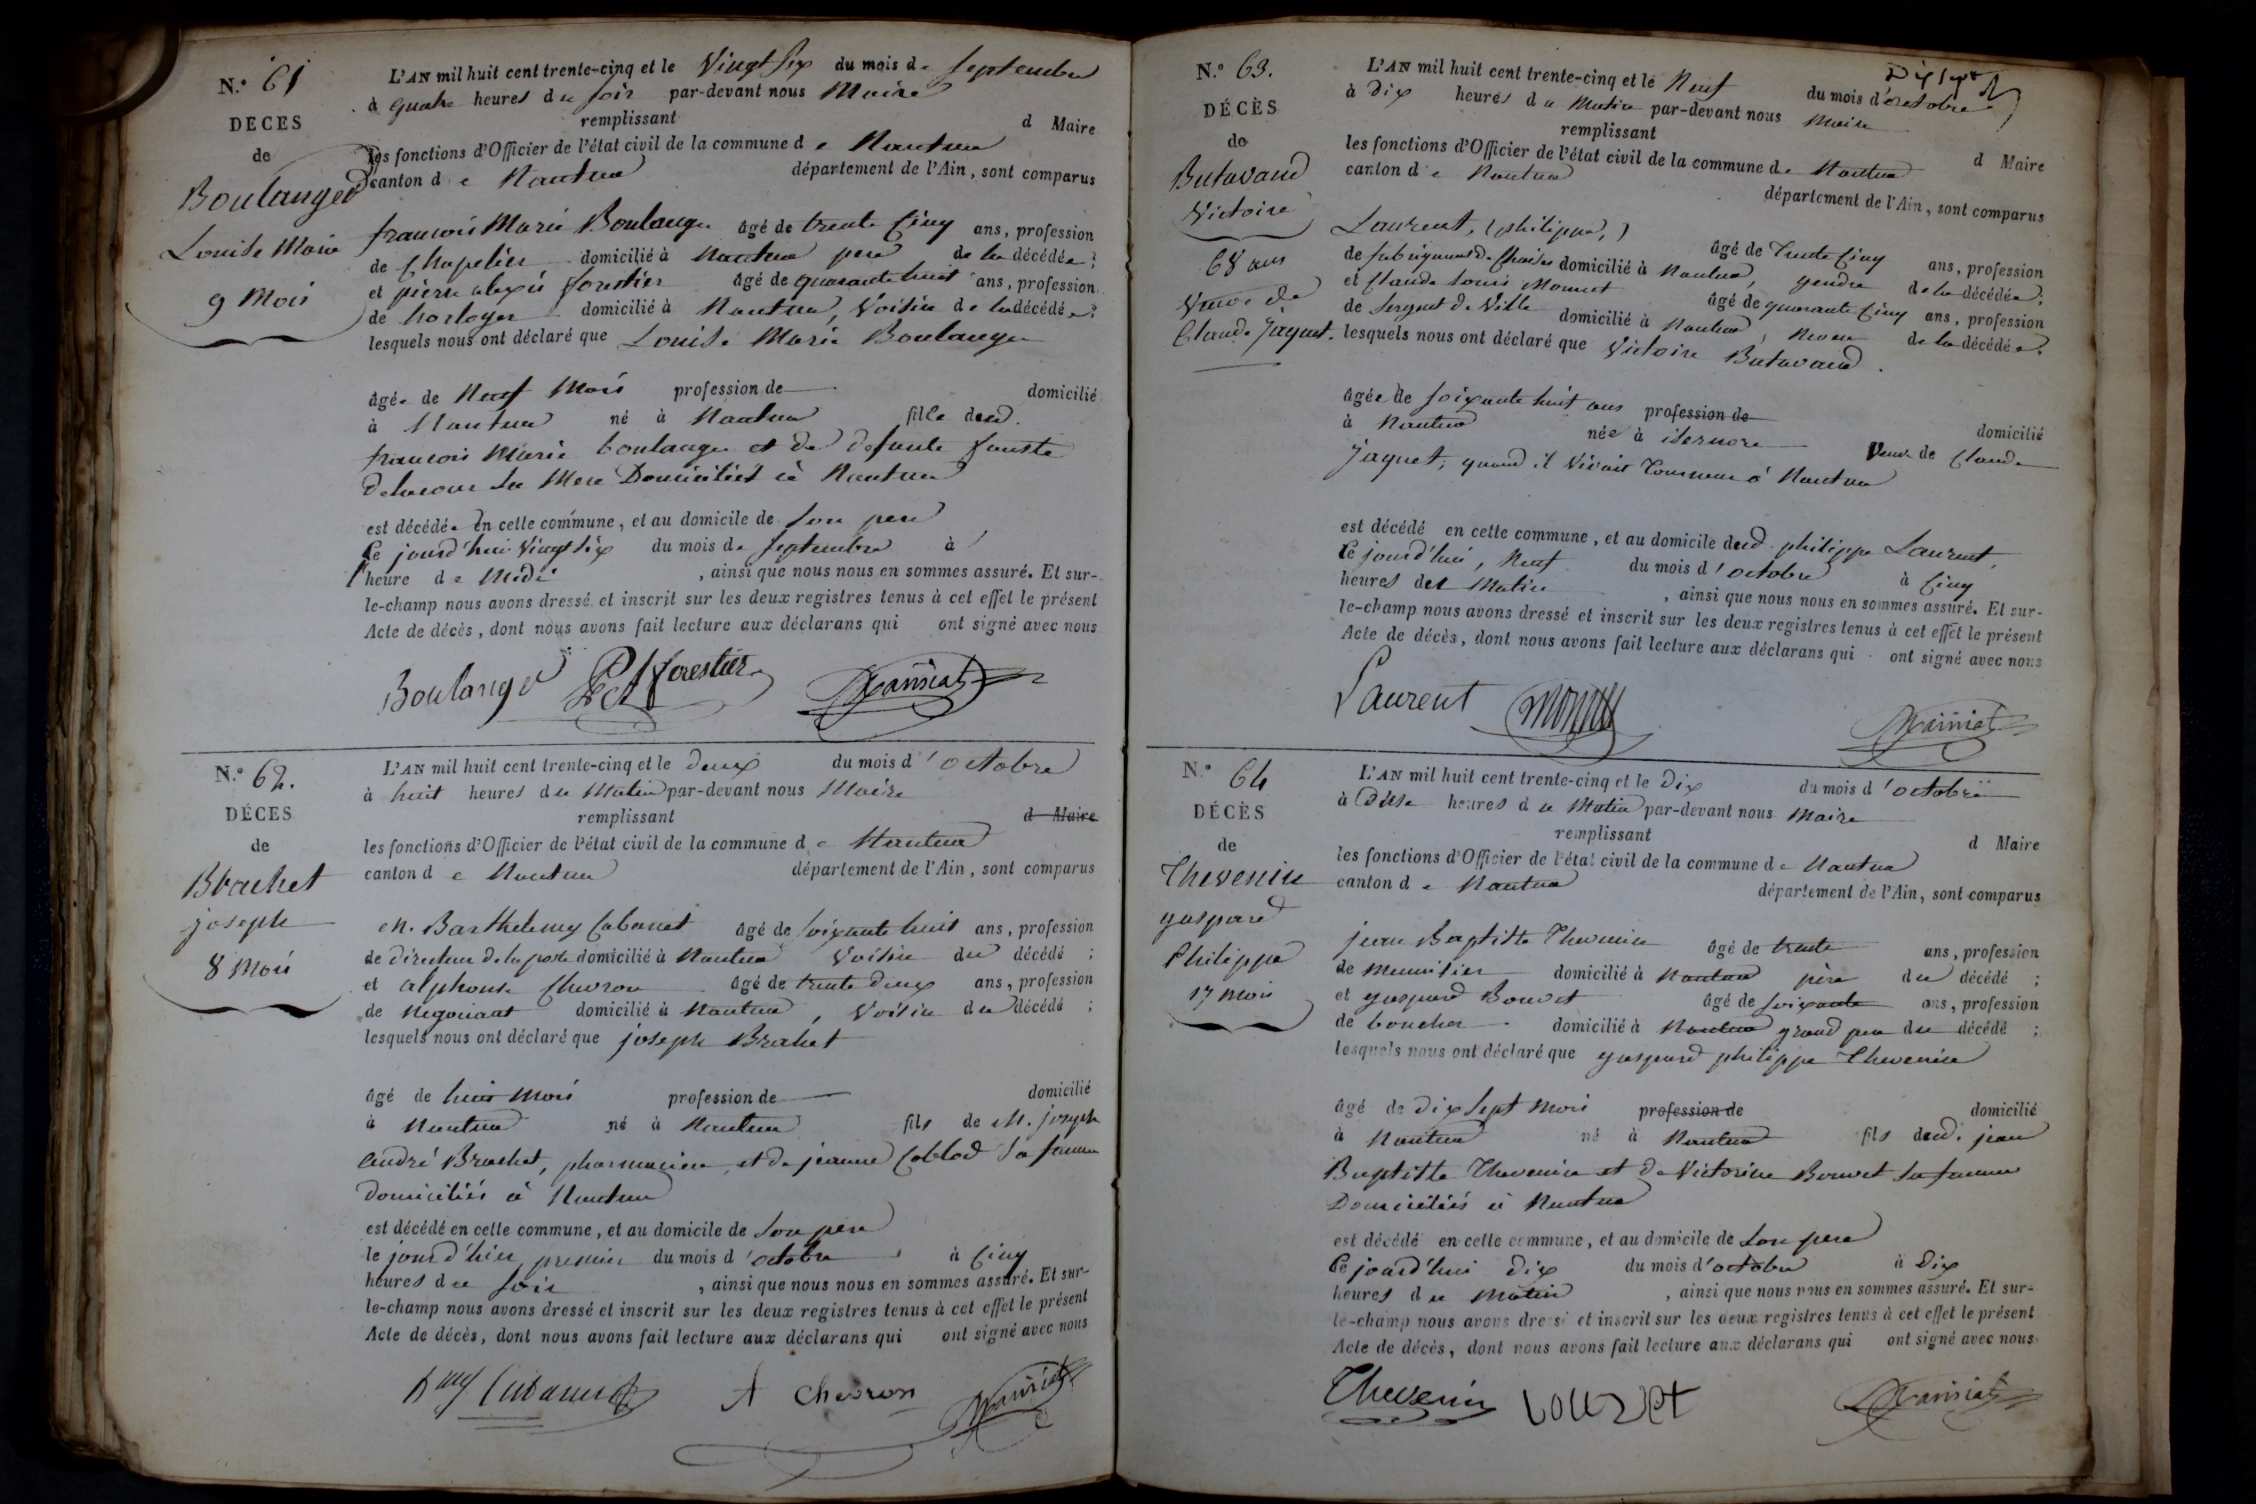 N.° 61
DÉCES
de
Boulanger
Louise Marie
9 Mois
L'AN mil huit cent trente-cinq et le Vingt Six du mois de Septembre
à quatre heures du soir par-devant nous Maire
remplissant d Maire
les fonctions d'Officier de l'état civil de la commune de Nantua
canton de Nantua département de l'Ain, sont comparus
françois Marie Boulanger âgé de trente Cinq ans, profession
de Chapelier domicilié à Nantua père de la décédée;
et pierre alexis forestier âgé de quarante huit ans, profession
de horloger domicilié à Nantua, Voisin de la décédée;
lesquels nous ont déclaré que Louise Marie Boulanger
âgée de Neuf Mois profession de domicilié
à Nantua né à Nantua fille dud.
françois Marie boulanger et de défunte fauste
Delacour sa Mere Domiciliés à Nantua
est décédée en cette commune, et au domicile de son pere
Ce jourd'hui Vingt Six du mois de Septembre à
l'heure de Midi, ainsi que nous nous en sommes assuré. Et sur-
le-champ nous avons dressé et inscrit sur les deux registres tenus à cet effet le présent
Acte de décès, dont nous avons fait lecture aux déclarans qui ont signé avec nous
Boulanger forestier
N.° 62.
DÉCES
de
Brachet
joseph
8 Mois
L'AN mil huit cent trente-cinq et le deux du mois d'octobre
à huit heures du Matin par-devant nous Maire
remplissant d Maire
les fonctions d'Officier de l'état civil de la commune de Nantua
canton de Nantua département de l'Ain, sont comparus
M. Barthelemy Cabanet âgé de soixante huit ans, profession
de directeur de la poste domicilié à Nantua Voisin du décédé;
et alphonse Chevron âgé de trente deux ans, profession
de Negociant domicilié à Nantua, Voisin du décédé;
lesquels nous ont déclaré que joseph Brachet
âgé de huit Mois profession de domicilié
à Nantua né à Nantua fils de M. joseph
andré Brachet, pharmacien et de jeanne Cabled sa femme
Domiciliés à Nantua
est décédé en cette commune, et au domicile de son pere
le jourd'hier premier du mois d'octobre à Cinq
heures du soir, ainsi que nous nous en sommes assuré. Et sur-
le-champ nous avons dressé et inscrit sur les deux registres tenus à cet effet le présent
Acte de décès, dont nous avons fait lecture aux déclarans qui ont signé avec nous
A Chevron
N.° 63.
DÉCÈS
de
Butavand
Victoire
68 ans
Veuve de
Claude Jaquet.
Dix sept
L'AN mil huit cent trente-cinq et le Neuf du mois d'octobre
à Dix heures du Matin par-devant nous Maire
remplissant d Maire
les fonctions d'Officier de l'état civil de la commune de Nantua
canton de Nantua département de l'Ain, sont comparus
Laurent, (philippe,) âgé de Trente Cinq ans, profession
de fabriquant de Chaises domicilié à Nantua, gendre de la décédée;
et Claude Louis âgé de quarante Cinq ans, profession
de Sergent de Ville domicilié à Nantua, Neveu de la décédée.
lesquels nous ont déclaré que Victoire Butavand.
âgée de soixante huit ans profession de domicilié
à Nantua née à isernore Veuve de Claude
Jaquet, quand il Vivait Tourneur à Nantua
est décédé en cette commune, et au domicile dud. philippe Laurent,
Ce jourd'hui, Neuf du mois d'octobre à Cinq
heures du Matin, ainsi que nous nous en sommes assuré. Et sur-
le-champ nous avons dressé et inscrit sur les deux registres tenus à cet effet le présent
Acte de décès, dont nous avons fait lecture aux déclarans qui ont signé avec nous
Laurent
N.° 64
DÉCÈS
de
Thevenin
gaspard
Philippe
17 mois
L'AN mil huit cent trente-cinq et le Dix du mois d'octobre
à heures du Matin par-devant nous Maire
remplissant d Maire
les fonctions d'Officier de l'état civil de la commune de Nantua
canton de Nantua département de l'Ain, sont comparus
jean Baptiste Thevenin âgé de trente ans, profession
de Menuisier domicilié à Nantua père du décédé;
et gaspard Bouvet âgé de soixante ans, profession
de boucher domicilié à Nantua grand pere du décédé;
lesquels nous ont déclaré que gaspard philippe Thevenin
âgé de Dix Sept Mois profession de domicilié
à Nantua né à Nantua fils dud. jean
Baptiste Thevenin et de Victorine Bouvet sa femme
Domiciliés à Nantua
est décédé en cette commune, et au domicile de son pere
Ce jourd'hui dix du mois d'octobre à Dix
heures du Matin, ainsi que nous nous en sommes assuré. Et sur-
le-champ nous avons dressé et inscrit sur les deux registres tenus à cet effet le présent
Acte de décès, dont nous avons fait lecture aux déclarans qui ont signé avec nous
Thevenin